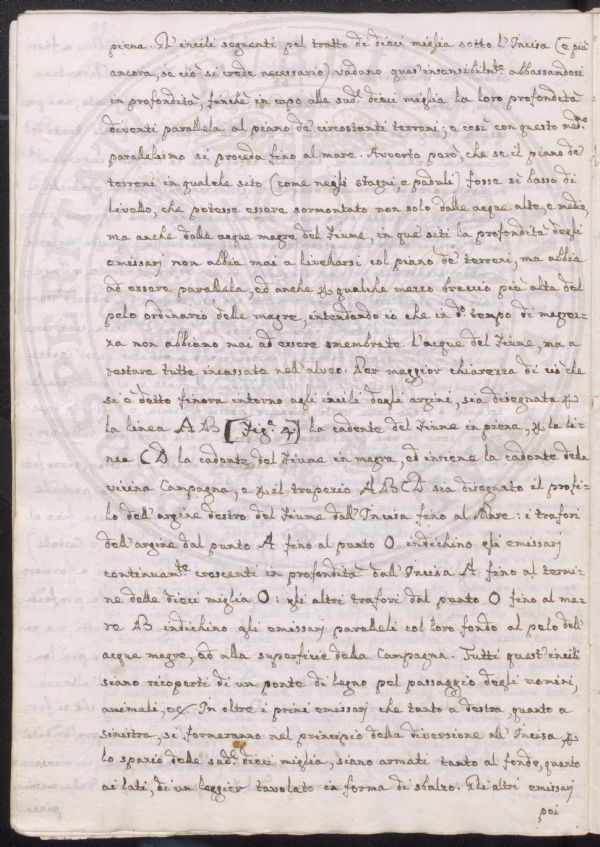 piena. Gl'incili seguenti pel tratto di dieci miglia sotto l'Incisa (e più
ancora, se ciò si crede necessario) vadano quas'insensibilm.te abbassandosi
in profondità, finchè in capo alle sud.e dieci miglia la loro profondità
diventi parallela al piano de' circostanti terreni; e così con questo med.mo
paralelismo si proceda fino al mare. Avverto però, che se il piano de'
terreni in qualche sito (come negli stagni e paduli) fosse sì basso di
livello, che potesse essere sormontato non solo dalle acque alte, e medie,
ma anche dalle acque magre del Fiume, in que' siti la profondità degli
emissarj non abbia mai a livellarsi col piano de' terreni, ma abbia
ad essere parallela, ed anche p qualche mezzo braccio più alta del
pelo ordinario delle magre, intendendo io che in d.o tempo di magrez-
za non abbiano mai ad essere smembrate l'acque del Fiume, ma a
restare tutte incassate nell'alveo. Per maggior chiarezza di ciò che
si è detto finora intorno agli incili degli argini, sia disegnata p
la linea AB [Fig.a 4.] la cadente del Fiume in piena, p la li-
nea CD la cadente del Fiume in magra, ed insieme la cadente della
vicina Campagna, e p il trapezio ABCD sia disegnato il profi-
lo dell'argine destro del Fiume dall'Incisa fino al Mare: i trafori
dell'argine dal punto A fino al punto O indichino gli emissarj
continuam.te crescenti in profondità dall'Incisa A fino al termi-
ne delle dieci miglia O: gli altri trafori dal punto O fino al ma-
re B indichino gli emissarj paralleli col loro fondo al pelo dell'
acque magre, ed alla superficie della Campagna. Tutti quest'incili
siano ricoperti di un ponte di legno pel passaggio degli uomini,
animali, &c. In oltre i primi emissarj che tanto a destra, quanto a
sinistra, si formeranno nel principio della diversione all'Incisa, p
lo spazio delle sud.e dieci miglia, siano armati tanto al fondo, quanto
ai lati, di un leggier tavolato in forma di sbalzo. Gli altri emissarj
poi